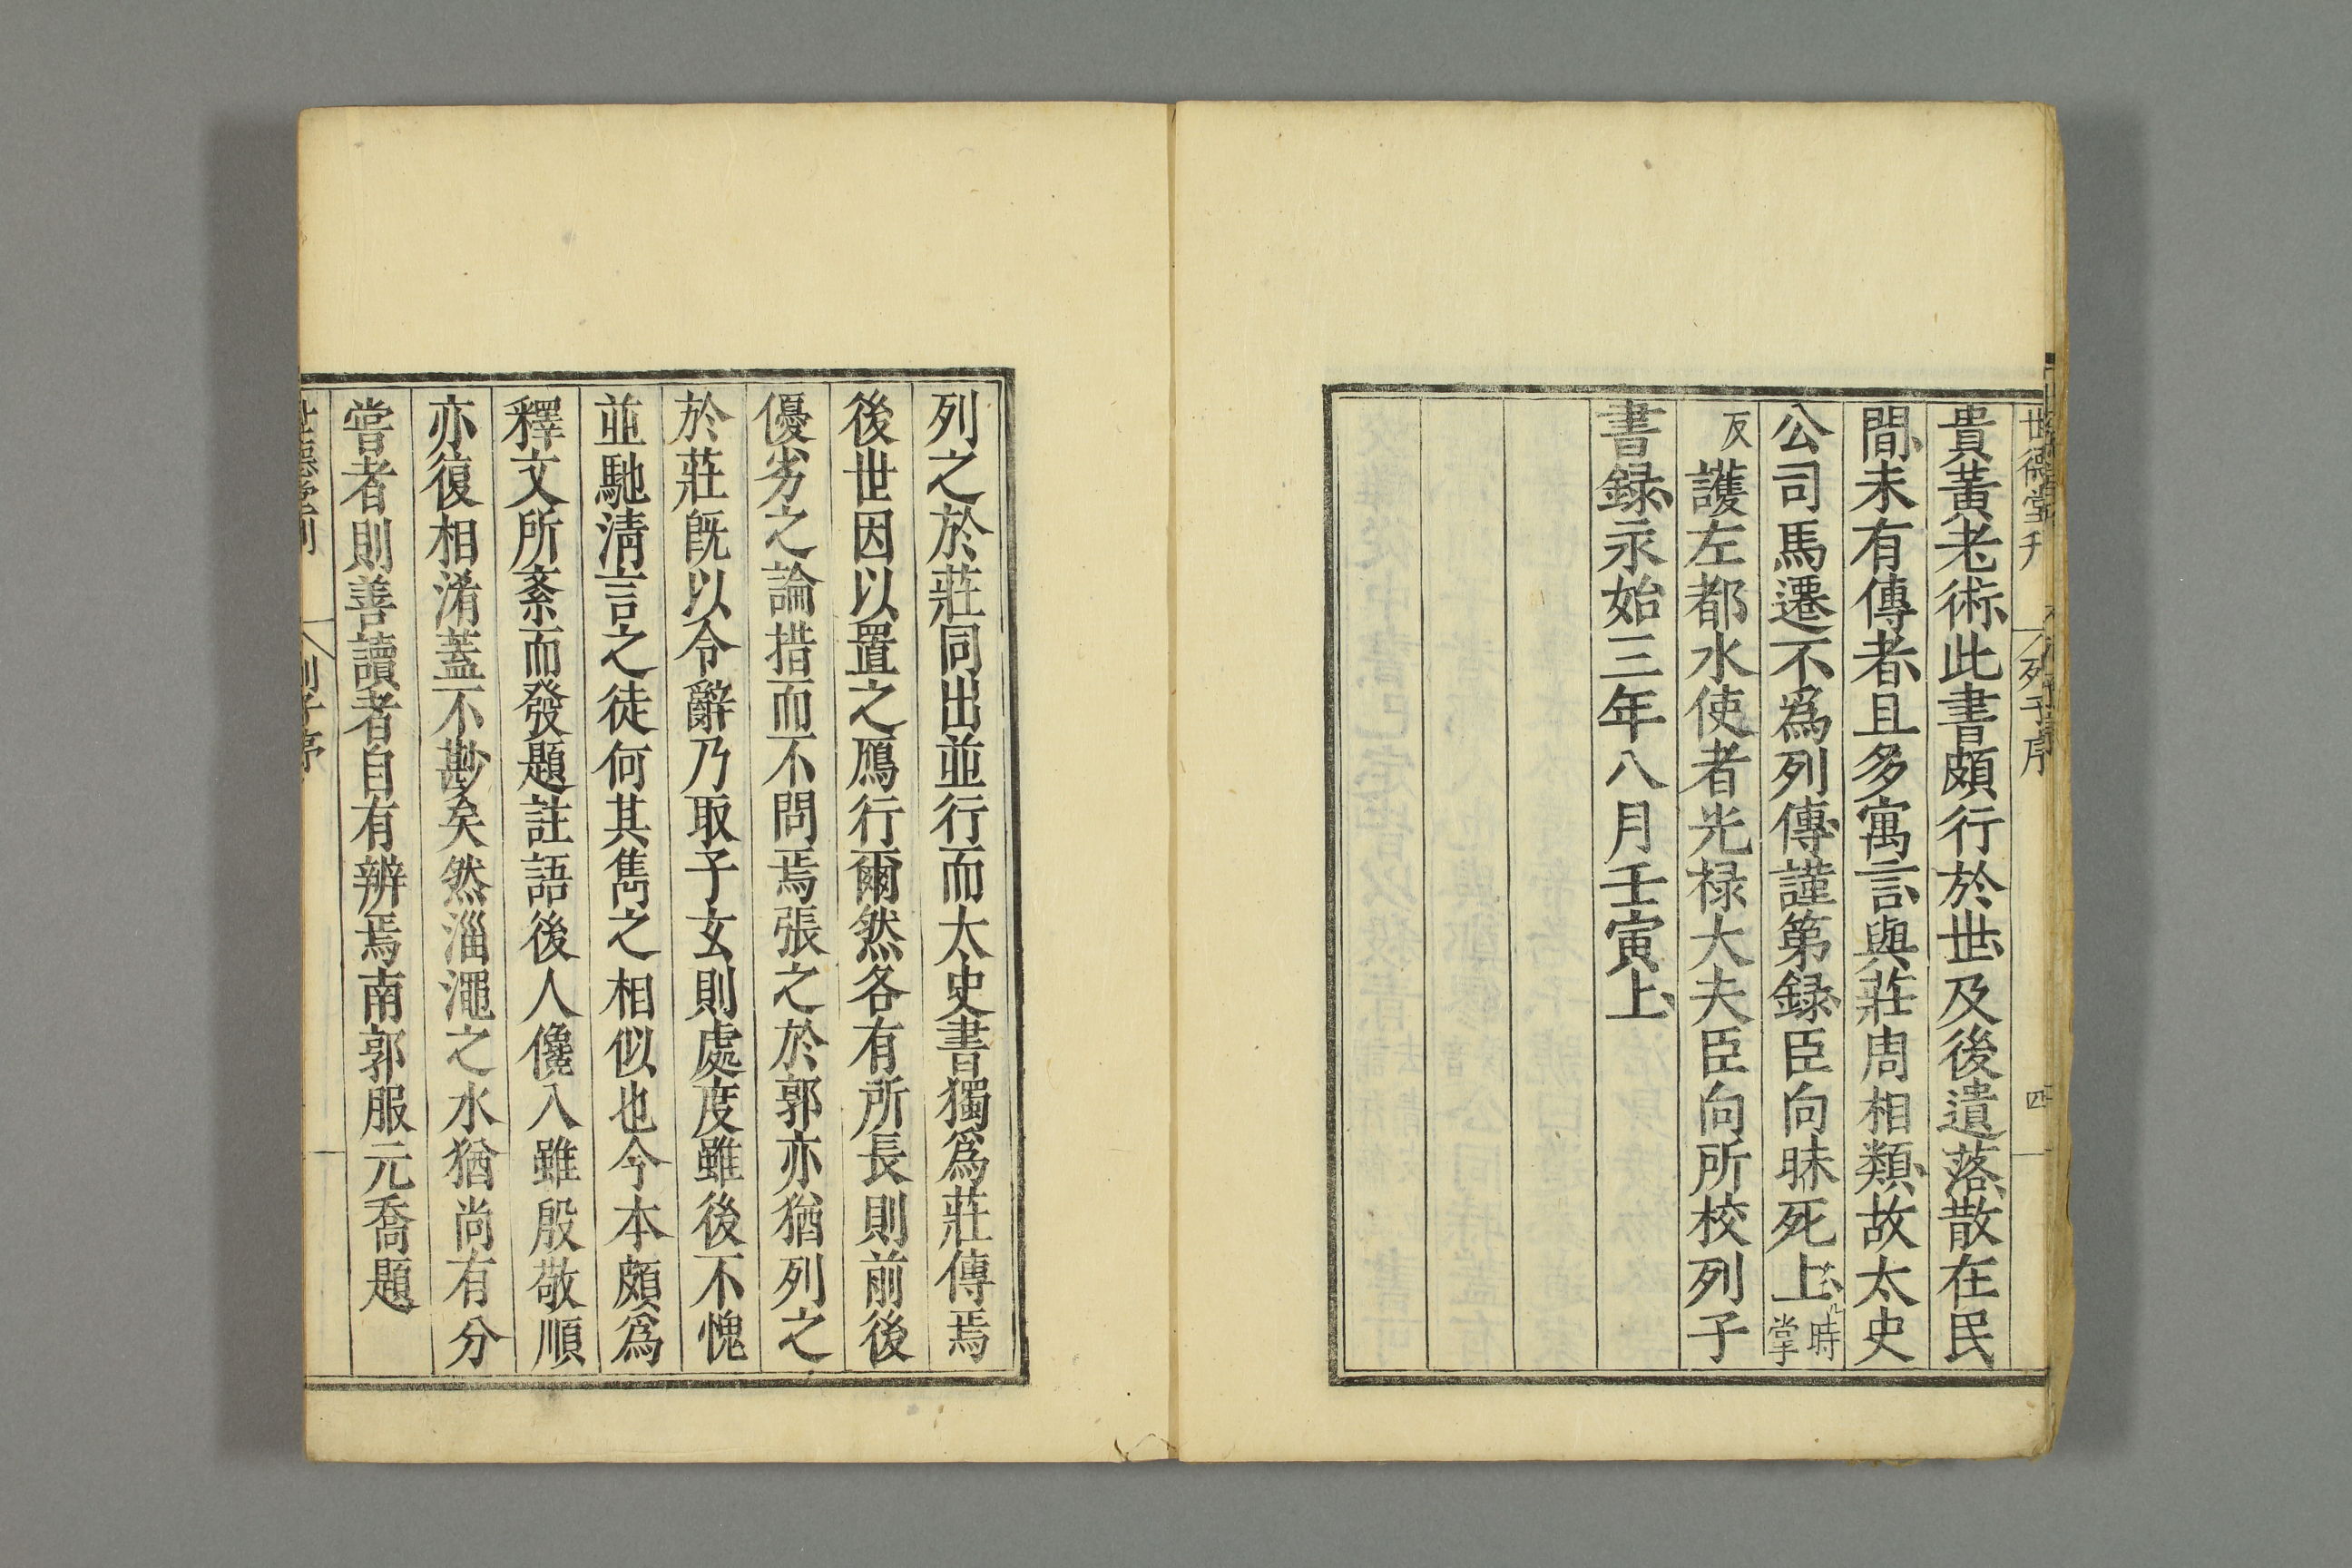 世德堂刊 列子序 四
貴黃老術此書頗行於世及後遺落散在民
間未有傳者且多寓言與莊周相類故太史
公司馬遷不爲列傳謹第録臣向昧死上上時掌
反護左都水使者光禄大夫臣向所校列子
書録永始三年八月壬寅上
列之於莊同出並行而太史書獨爲莊傳焉
後世因以置之鴈行爾然各有所長則前後
優劣之論措而不問焉張之於郭亦猶列之
於莊旣以令辭乃取子玄則處度雖後不愧
並馳淸言之徒何其雋之相似也今本頗爲
釋文所紊而發題註語後人儳入雖殷敬順
亦復相淆蓋不尠矣然淄澠之水猶尚有分
嘗者則善讀者自有辨焉南郭服元喬題
列子序